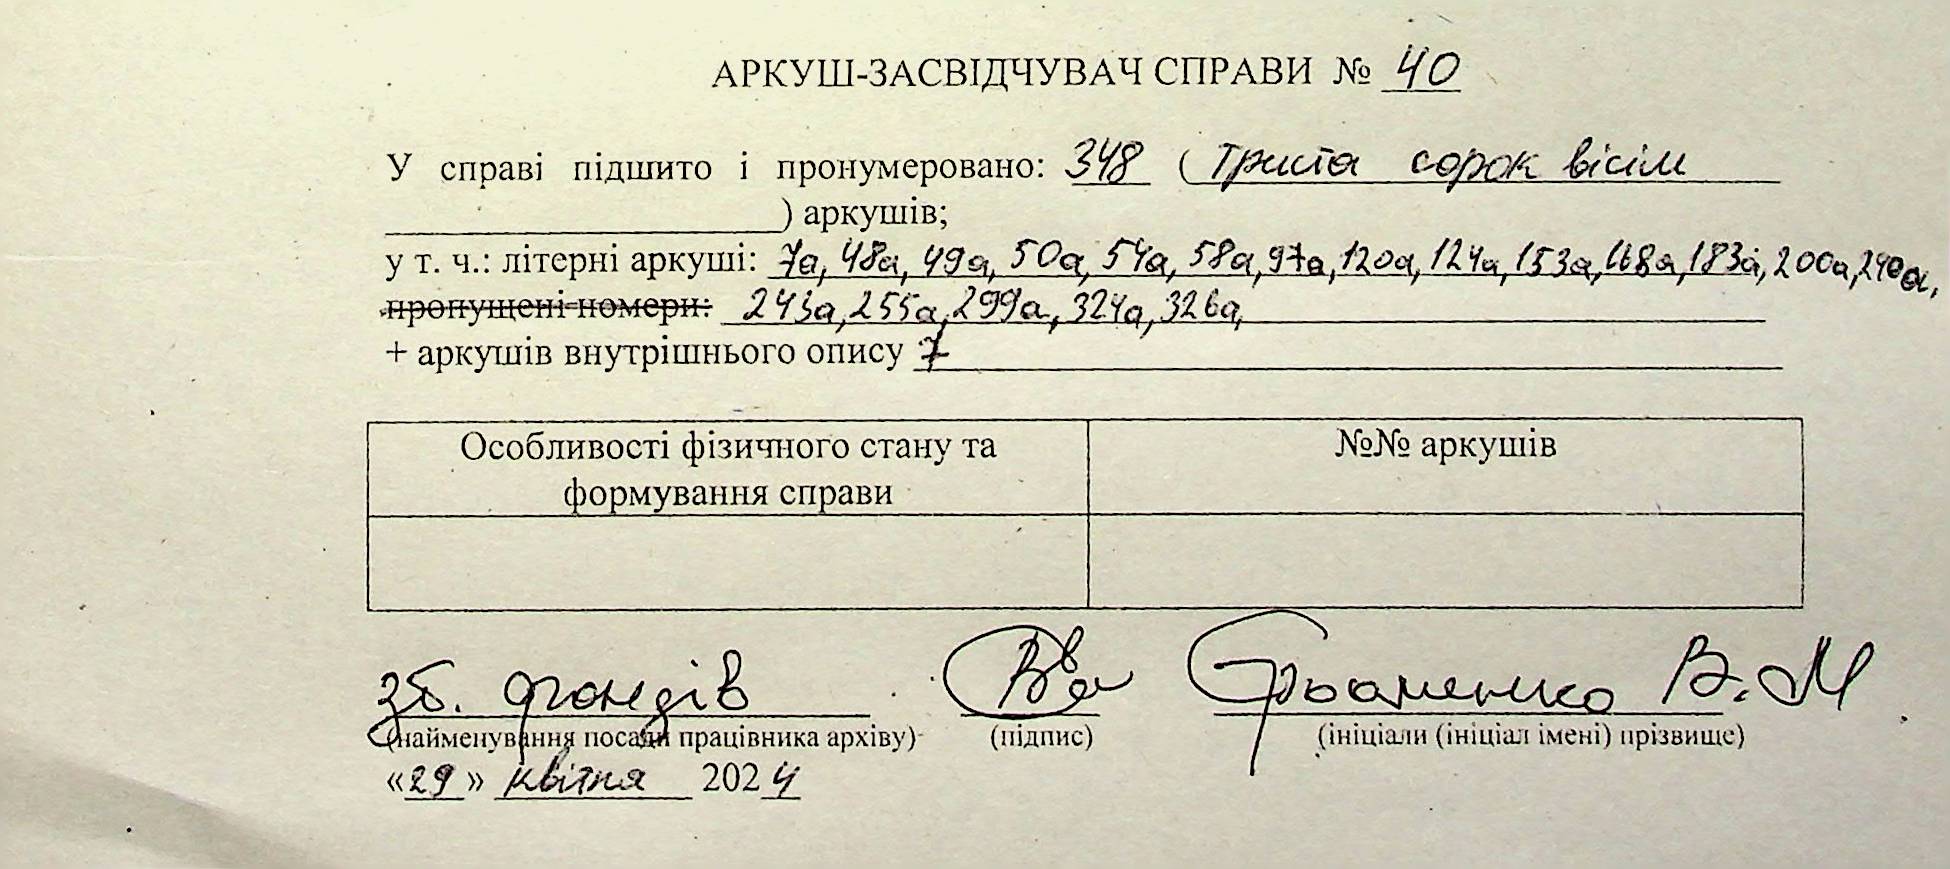 АРКУШ-ЗАСВІДЧУВАЧ СПРАВИ № 40
У справі підшито і пронумеровано: 348 (триста сорок вісім
) аркушів;
у т. ч.: літерні аркуші: 7а, 48а, 49а, 50а, 54а, 58а, 97а, 120а, 124а, 153а, 168а, 183а, 200а, 240а,
пропущені номери: 243а, 255а, 299а, 324а, 326а,
+ аркушів внутрішнього опису 7
Особливості фізичного стану та формування справи
№№ аркушів
зб. фондів В. М
(найменування посади працівника архіву) (підпис) (ініціали (ініціал імені) прізвище)
«29» квітня 2024